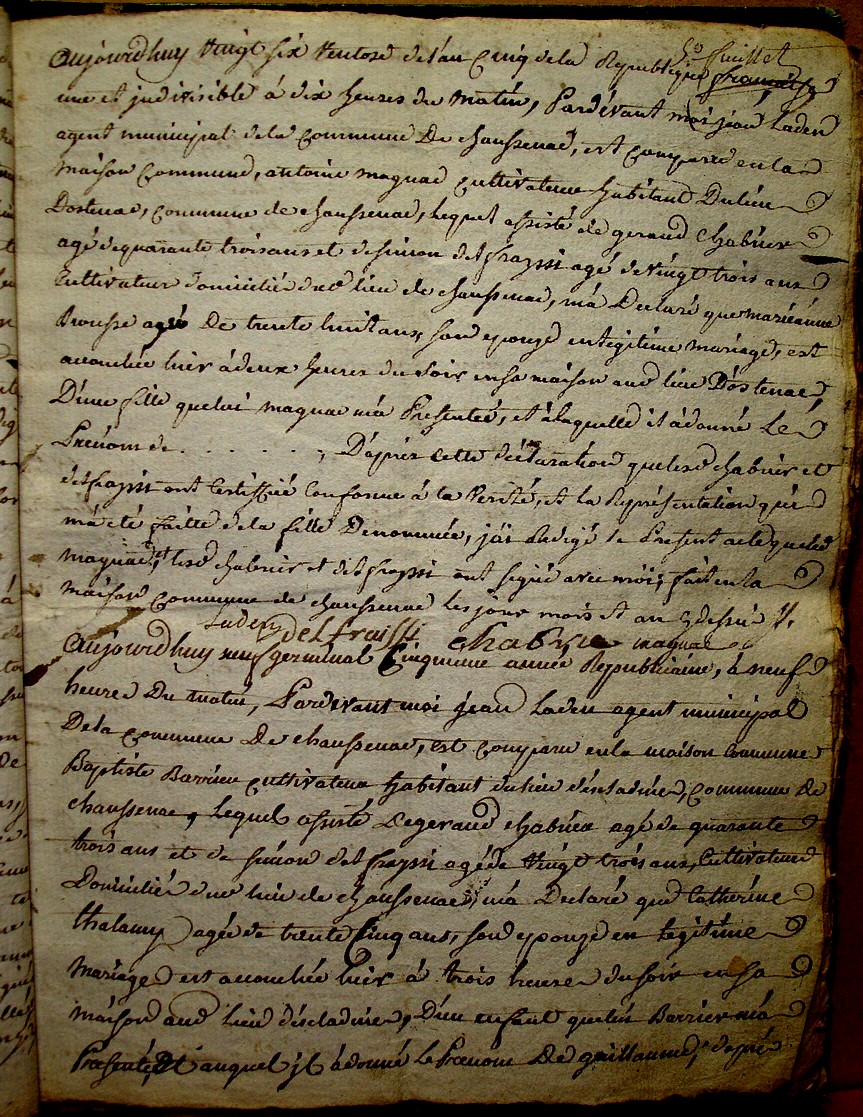 50 feuillet
aujourdhuy vingt six ventose de l'an Cinq de la Republique française
une et indivisible à dix heures du matin, Pardevant moi jean Laden
agent municipal de la Commune De chaussenac, est comparu en la
maison Commune, antoine magnac cultivateur habitant Du lieu
Dostenac, Commune de chaussenac, lequel assisté de geraud Chabrier
agé de quarante trois ans et de simon delfrayssi agé de vingt trois ans
Cultivateur domicilié du lieu de chaussenac, m'a Declaré que marieanne
Brousse agée De trente huit ans, son epouze en legitime mariage, est
accouchée hier à deux heures du soir en sa maison aud lieu Dostenac,
D'une fille que lui magnac m'a Presentée, et à laquelle il à donné Le
Prénom de . . . . . . , D'après cette déclaration que lesd chabrier et
delfrayssi ont Certiffié Conforme à la verité, et la Représentation qui
m'a été faitte de la fille Denommée, j'ai Redigé le Present acte que led
magnac, et lesd chabrier et delfrayssi ont signé avec moi; fait en la
maison Commune de chaussenac les jour mois et an q dessus
Laden Delfraissi chabrie magnac
Aujourdhuy neuf germinal Cinquieme année Republicaine, à neuf
heures Du matin, Pardevant moi jean Laden agent municipal
De la Commune De chaussenac, est Comparu en la maison Commune
Baptiste Barrieu cultivateur habitant du lieu commune de
chaussenac, Lequel assisté De geraud chabrier agé de quarante
trois ans et de simon delfrayssi agé de vingt trois ans, Cultivateur
Domicilié du lieu de chaussenac, m'a Declaré que Catherine
thalamy agée de trente Cinq ans, son epouze en legitime
mariage est accouchée hier à trois heures du soir en sa
maison aud lieu D'un enfant que lui Barrier m'a
Presenté, Et auquel il à donné Le Prenom De guillaume, d'après